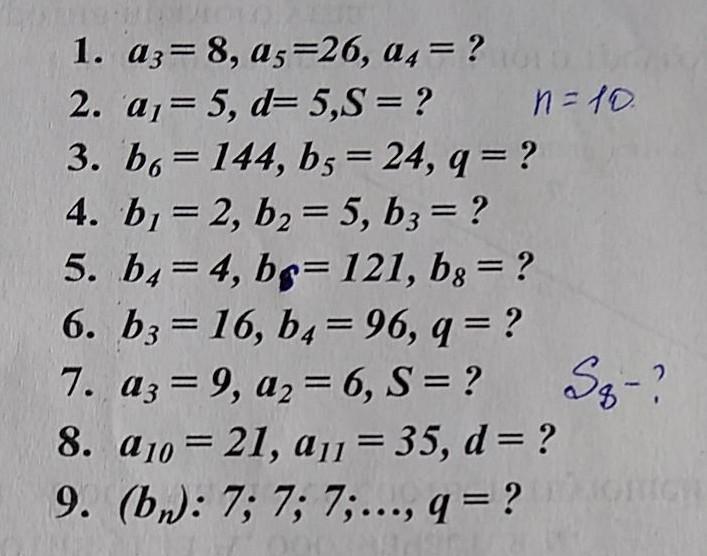 1. a₃= 8, a₅=26, a₄= ?
2. a₁= 5, d= 5,S = ? n = 10.
3. b₆ = 144, b₅ = 24, q = ?
4. b₁ = 2, b₂ = 5, b₃ = ?
5. b₄ = 4, b₆= 121, b₈ = ?
6. b₃ = 16, b₄ = 96, q = ?
7. a₃ = 9, a₂ = 6, S = ? S₈ - ?
8. a₁₀ = 21, a₁₁ = 35, d = ?
9. (bₙ): 7; 7; 7;..., q = ?